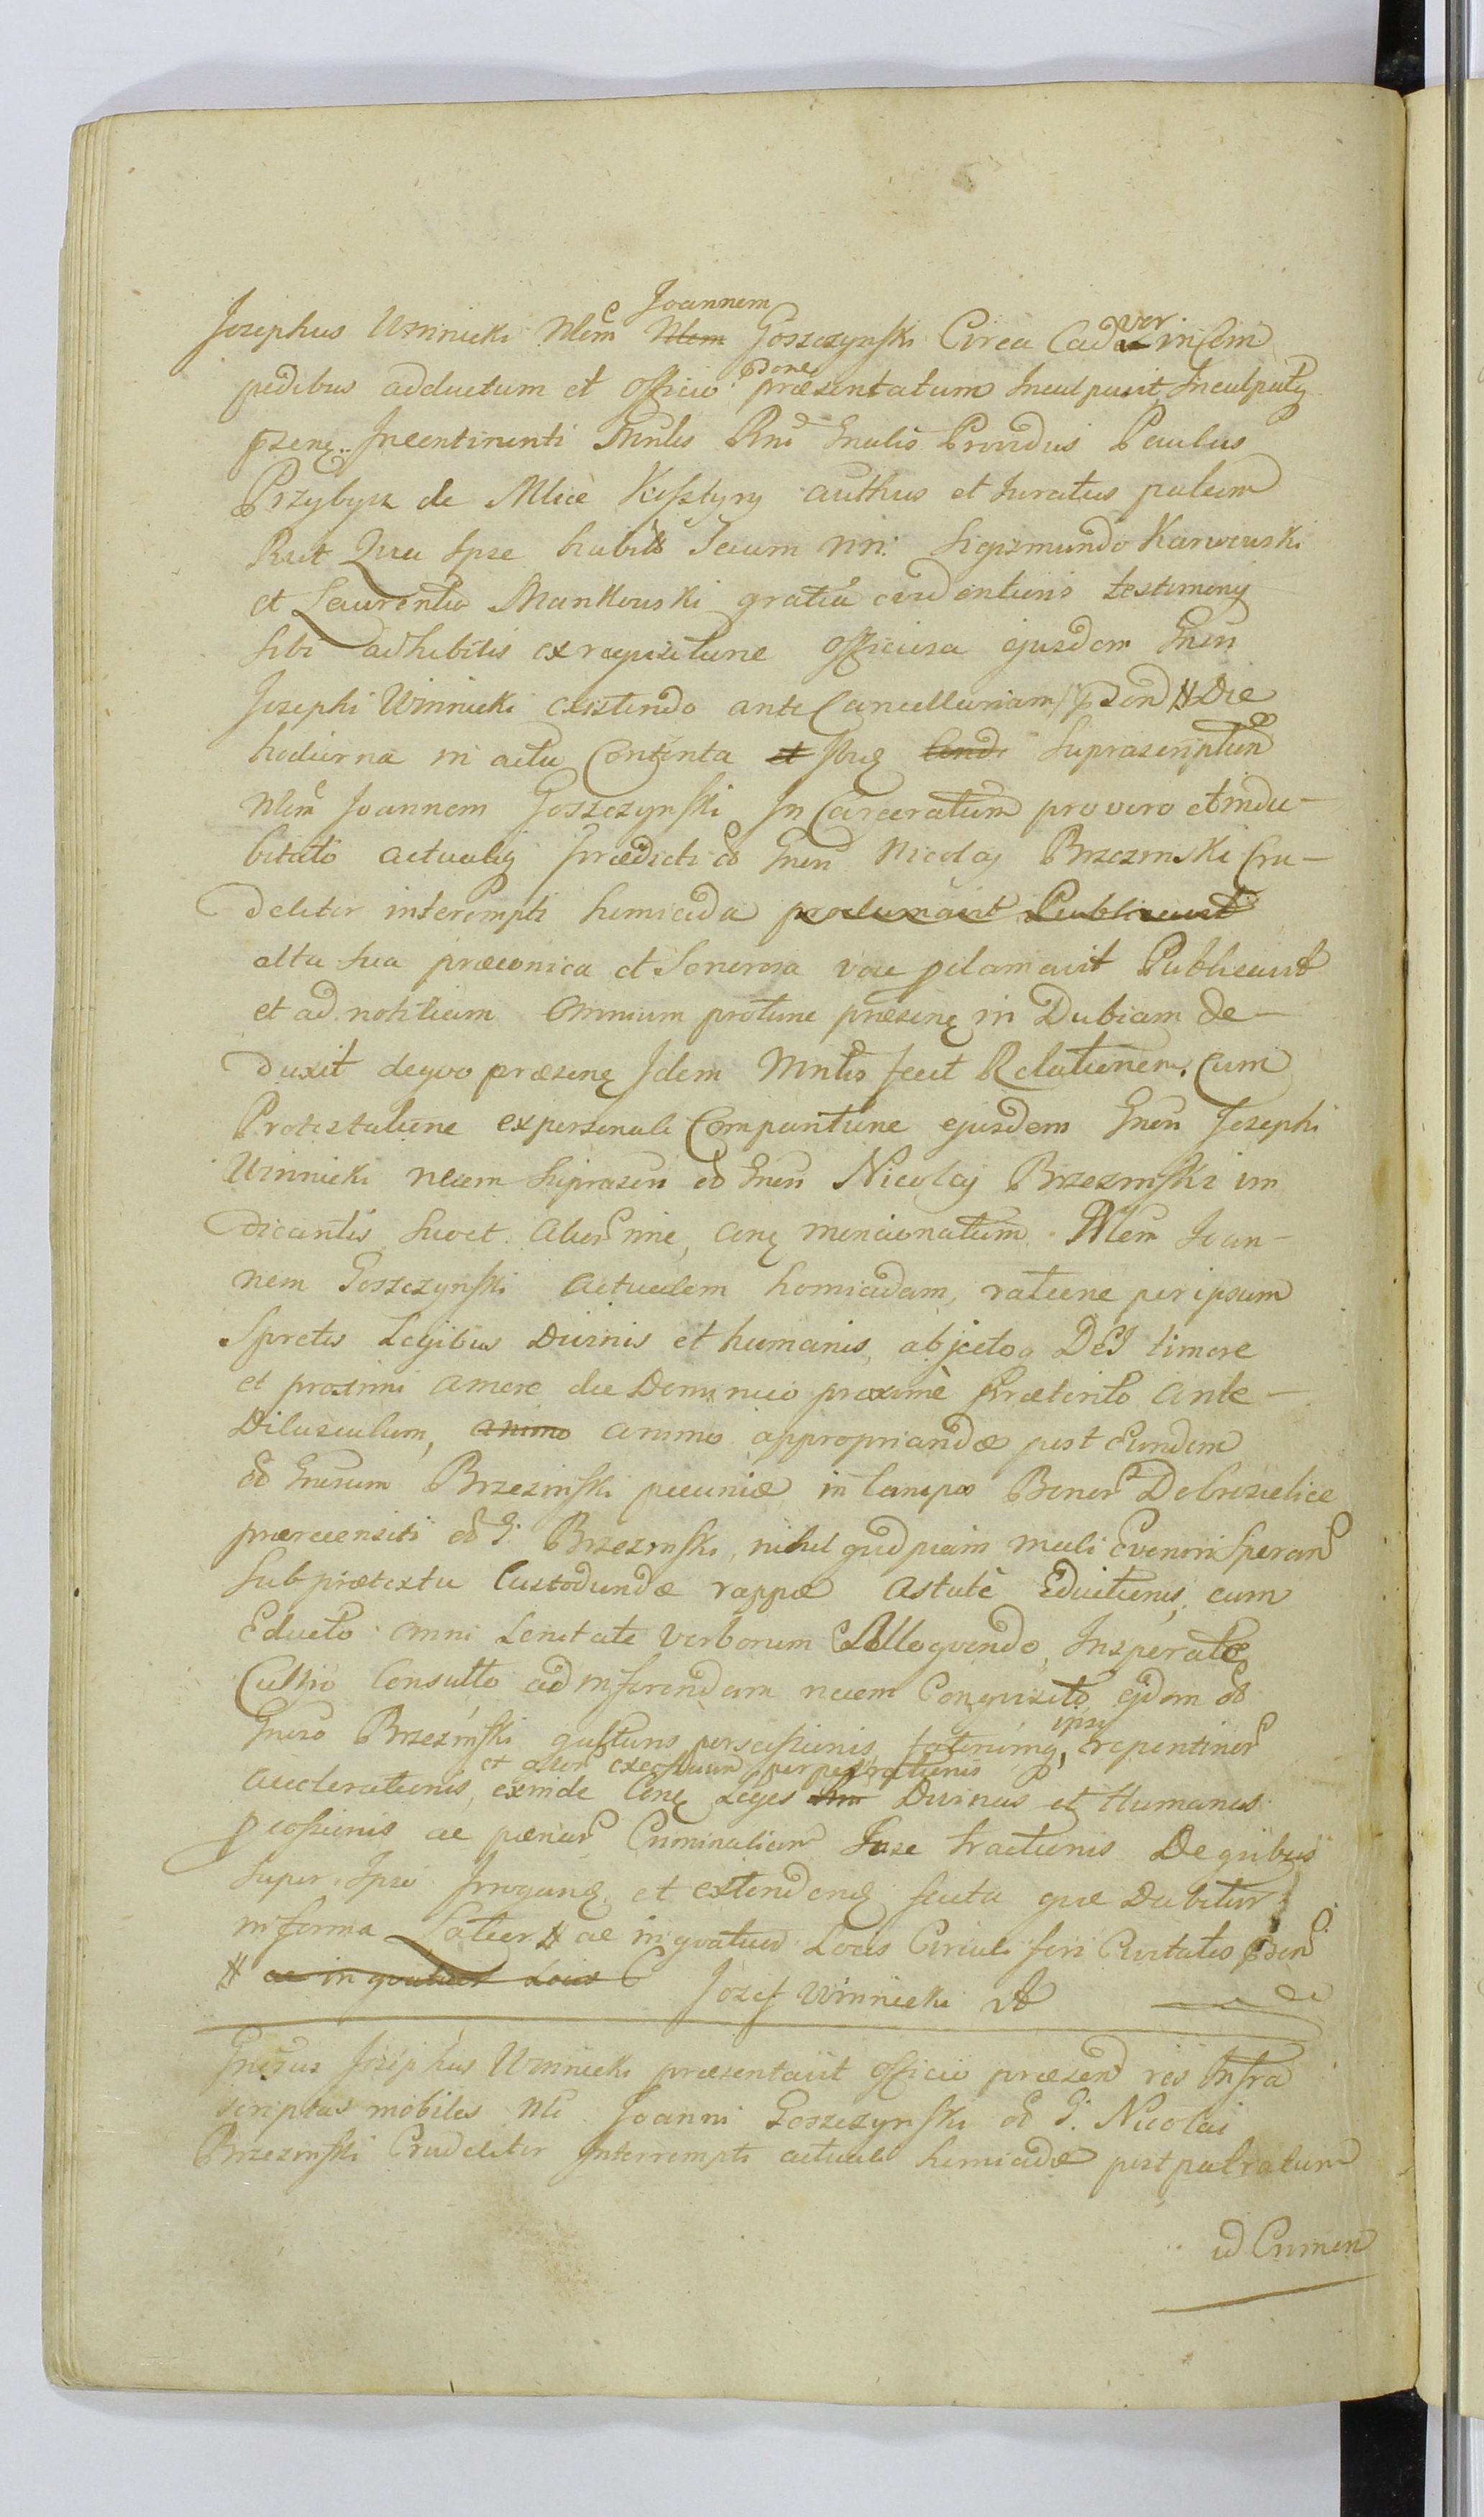 Joannem
Josephus Winnicki Nlem Nlem Goszczynski Circa Cadaver insem
pedibus adductum et officio praesentatum Inculpavit Inculpatq
Incontinenti Mnlis Rni Gnalis Providus Paulus
Przybysz de Mlice Kosztyry authus et Juratus palam
Rcit Quia Ipse habitis secum NN: Sigismundo Karwowski
et Laurentio Mankowski gratia evidentioris testimony
sibi adhibitis ex requisitione officiosa ejusdem Gnen
Josephi Winnicki existendo ante Cancellariam # Die
hodierna in actu Contenta et Suprascriptum
Nlem Joannem Goszczynski In Carceratum pro vero et indu-
bitato actualiq praedicti ol Gnen Nicolaj Brzezinski Cru-
deliter interempti homicida proclamavit Publicavit
alta sua praeconica et Sonorosa voce pclamavit Publicavit
et ad notitiam omnium protunc praesenq in Dubiam de-
duxit deqvo praesenq Idem Mnlis fecit Relationem. Cum
Protestatione ex personali Comparitione ejusdem Gnen Josephi
Winnicki necem ol Gnen Nicolaj Brzezinski vin
dicantis, conq mencionatum Nlem Joan-
nem Goszczynski actualem homicidam, ratione per ipsum
Spretis Legibus Divinis et humanis, abjecto DEI timore
et proximi amore die Dominico proximè praeterito ante-
Diluculum, animo animo appropriandae post Eundem
ol Gnerum Brzezinski pecuniae in Campo Bonor Dobrosielice
praerecensiti ol G: Brzezinski, nihil quidpiam mali Evenire Speran
Sub praetextu Custodiendae rappae astutè Eductionis, cum
Educto omni Lenitate verborum Alloqvendo, Insperatè
Cultro Consulto ad inferendam necem Conquisito ejdem ol
Gneso Brzezinski gutturis perscissionis, ipsq repentiner
et alior excessuum perpetrationis
accelerationis, exinde Conq Leges Divinas et Humanas
ac paenar Criminalium Inse tractionis De qvibus
super Ipso Irrogang et extendenq secuta quae Dabitur
in forma Latior # ac in qvatuor Locis Circuli fori Civitatis
# ac in qvatuor Locis C Jozef Winnicki
Gnerus Josephus Winnicki praesentavit officio praesen res Infra
scriptas mobiles Nli Joanni Goszczynski ol G: Nicolai
Brzezinski Crudeliter Interrempti actuali homicidae post patratum
id Crimen